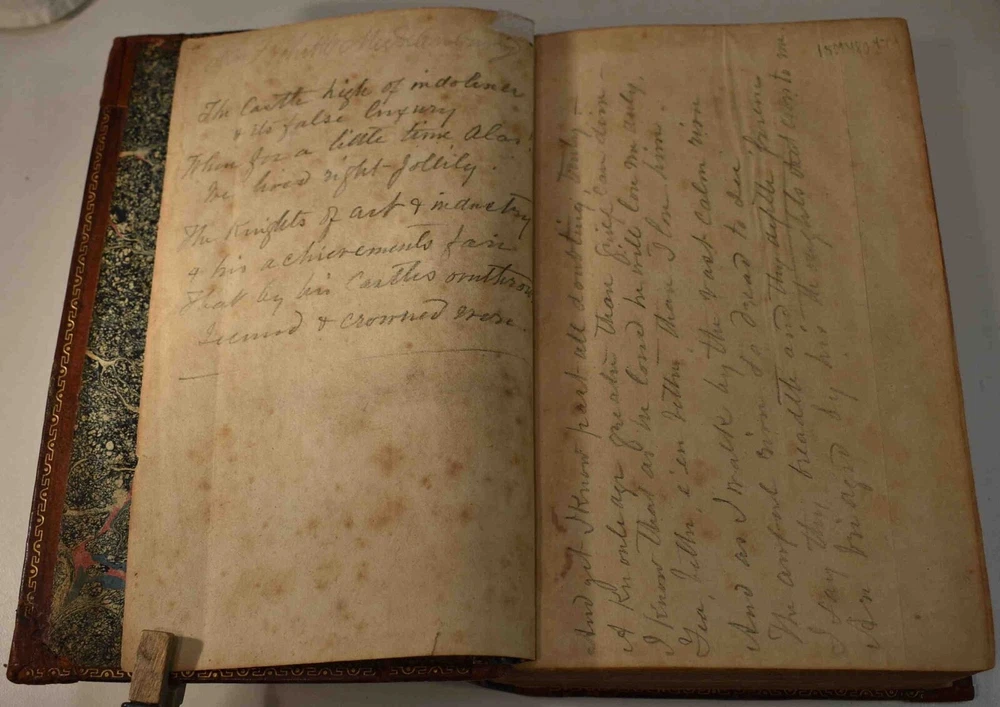 The Castle high of indolence
& its false luxury
When for a little time Alas!
We lived right jollily.
The Knights of art & industry
& his achievements fair
That by his Castles overthrow
Secured & crowned were.
And yet I know past all doubting, truly
A Knowledge greater than grief can dim
I Know that as he loved he will love me duly
Yea, better, e'en better than I love him.
And as I walk by the vast calm river
The awful river so dread to see
I say thy breadth and thy depth forever
Are bridged by his thoughts that come to me